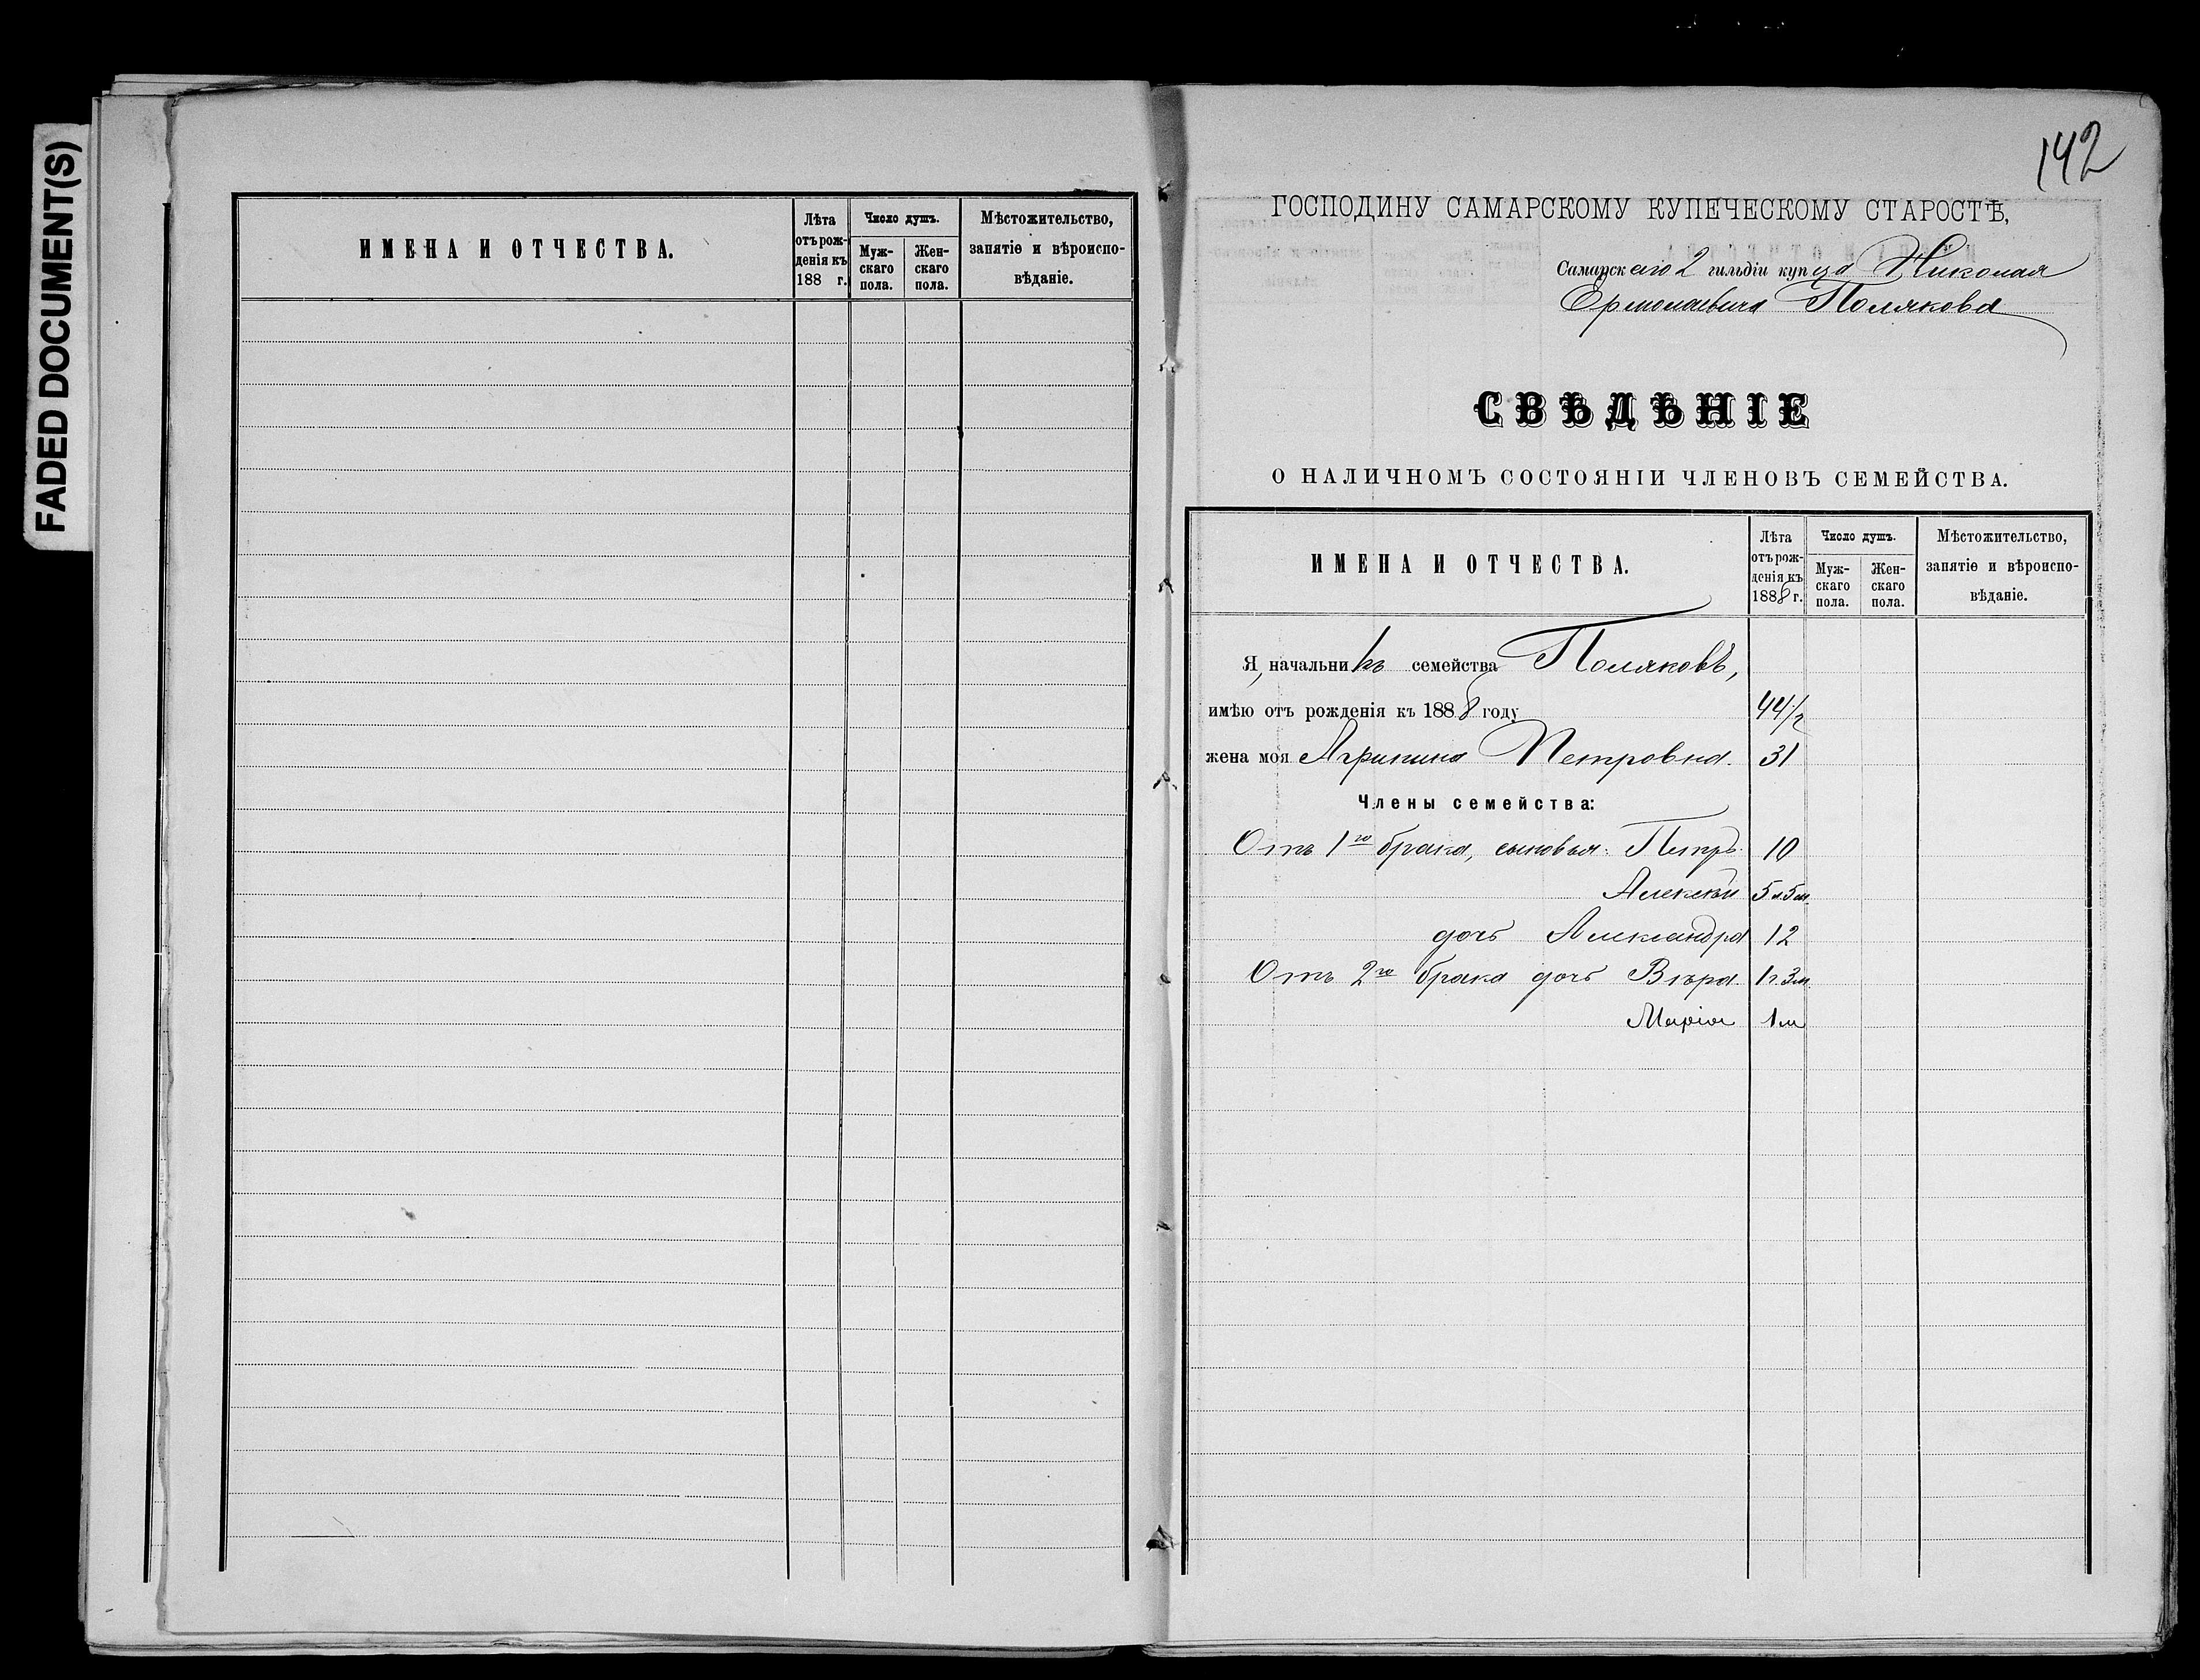 FADED DOCUMENT(S)
ИМЕНА И ОТЧЕСТВА.
Лѣта отъ рожденія къ 188 г.
Число душъ.
Мужскаго пола.
Женскаго пола.
Мѣстожительство, занятіе и вѣроисповѣданіе.
142
ГОСПОДИНУ САМАРСКОМУ КУПЕЧЕСКОМУ СТАРОСТѢ,
Самарскаго 2 гильдіи купца Николая
Ермолаевича Полякова
СВѢДѢНІЕ
О НАЛИЧНОМЪ СОСТОЯНІИ ЧЛЕНОВЪ СЕМЕЙСТВА.
ИМЕНА И ОТЧЕСТВА.
Лѣта отъ рожденія къ 1888 г.
Число душъ.
Мужскаго пола.
Женскаго пола.
Мѣстожительство, занятіе и вѣроисповѣданіе.
Я, начальникъ семейства Поляковъ,
имѣю отъ рожденія къ 1888 году 44 1/2
жена моя Агрипина Петровна. 31
Члены семейства:
Отъ 1го брака, сыновья: Петръ 10
Алексѣй 5 л 5 м.
дочь Александра 12
Отъ 2го брака дочь Вѣра. 1 г. 3 м.
Марія 1 м